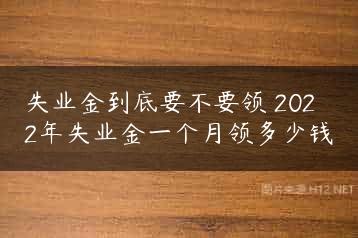 失业金到底要不要领 202
2年失业金一个月领多少钱
图片来源H12.NET